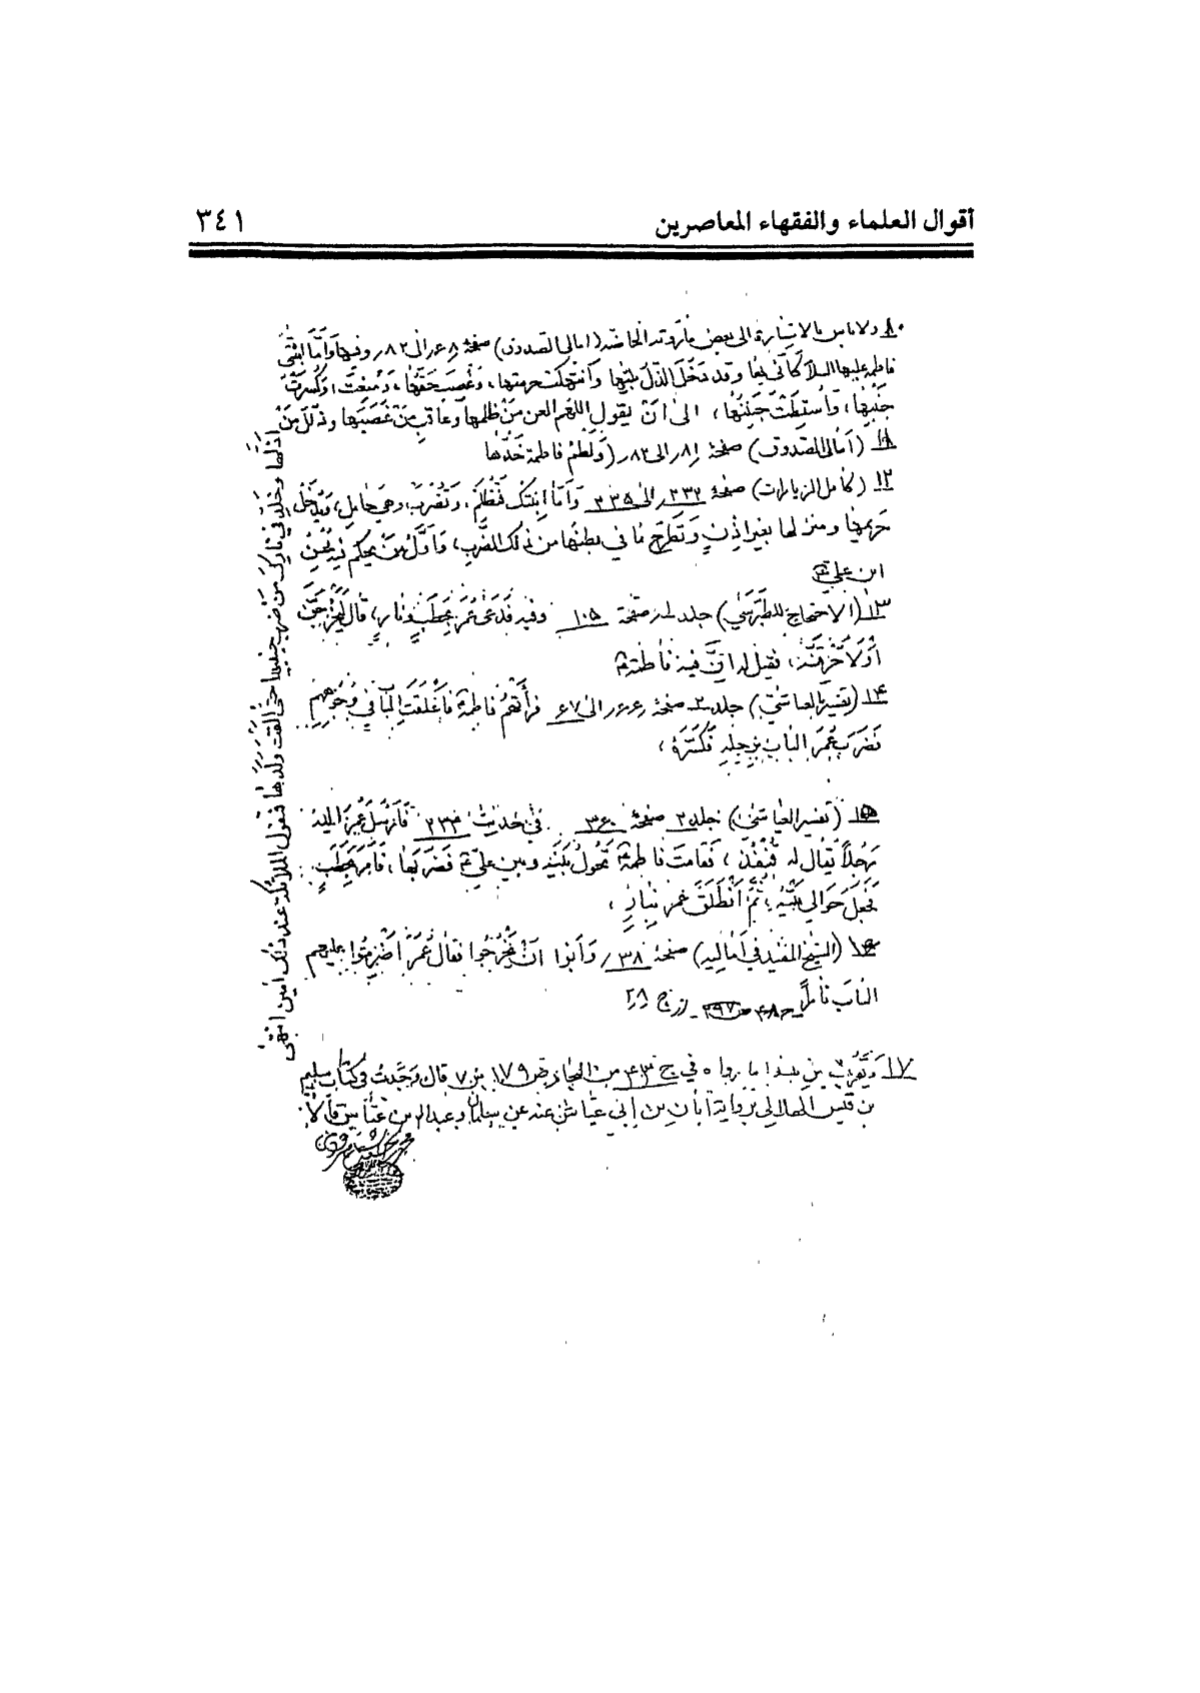 أقوال العلماء والفقهاء المعاصرين ٣٤١
ولا بأس بالاشارة الى بعض ما روته الخاصة (امالي الصدوق) صفحة ٦٨ الى ٨٢ وفيها وَأَمَّا ابْنَتي
فاطمه عليها السلام كأنّي بها وقد دَخَلَ الذُّلّ بيتها وَانْتهِكَتْ حرمتها، وَغُصِبَ حَقّها، وَمُنِعَتْ، وَكُسِرَتْ
جَنْبُها، وَأُسقِطَتْ جَنينُها، الى اَنْ يقول اللهم العن مَنْ ظلمها وَعَاقِب مَنْ غَصَبَها وذلّلْ مَنْ
اَذَلّها وخَلِّد في نارِكَ مَنْ ضَرَب جنبيها حتى القت ولدَها فتقول الملائكة عند ذلك امين انتهى
(اَمالى الصدوق) صفحة ٨١ الى ٨٢ (وَلَطمُ فاطمة خَدّها
١٢ (كامل الزيارات) صفحة ٣٣٢ الى ٣٣٥ وَاَمّا ابْنَتكَ فَتُظلَم، وَتُضْرَبُ وهيَ حامِل، وَيُدخَل
حَريمِها ومنزلها بغير اِذنٍ وَتَطرَح مٰا في بطنها من ذلك الضَّربِ، وَاَوّلُ مَنْ يحكم فيه مُحسِنُ
ابن عليّ
١٣ (الاحتجاج للطَبرَسي) جلد ١ صفحة ١٠٥ وفيه فَدَعٰى عُمَر بحَطَبٍ ونارٍ، قٰالَ لَيَخْرُجَنَّ
اَوْ لاُحَرِّقَنَّهُ، فقيل له انّ فيه فٰاطمة
١٤ (تفسير العياشي) جلد ٢ صفحة ٦٦ الى ٦٧ فرأَتهُمْ فاطمة فَاَغْلَقَتِ البٰابَ في وُجُوهِهِم
فَضَرَبَ عُمَرَ البٰابَ بِرِجْلِهِ فَكَسَّرَهُ،
١٥ (تفسير العيّاشي) جلد ٢ صفحة ٣٠٧ في حديث ١٣٤ فَاَرْسَلَ عُمَر اليهِ
رَجُلاً يُقٰالُ له قُنْفُذ، فَقامَتْ فاطمة تَحُولُ بَيْنَهُ وبين عليّ فَضَرَبَها، فَاَمَرَ بِحَطَبٍ
فَجُعِلَ حَوالي بَيْتِهِ، ثُمَّ اَنْطَلَقَ عُمَر بِنٰارٍ،
١٦ (الشيخ المفيد في اَمٰاليه) صفحة ٣٨ وَاَبَوْا اَنْ يَخْرُجُوا فقٰال عُمَر اَضْرِمُوا عليهم
البٰابَ نٰاراً
١٧ وَيَقرُب مِن هذا ما رواه في ج ٤٣ من البحار ص ١٧٩ س ٧ قال وَجَدتُ في كتاب سليم
بن قيس الهلالي بِرِوٰاية اَبٰان بن اَبي عيّاش عنه عن سلمان وعبدالله بن عبّاس قالا